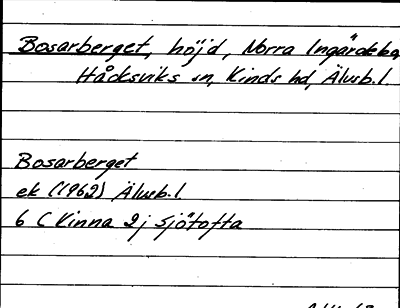 Bosarberget, höjd, Norra Ingärdebo,
Håcksviks sn, Kinds hd, Älvsb.l.
Bosarberget
ek (1962) Älvsb.l.
6 C Kinna 2j Sjötofta